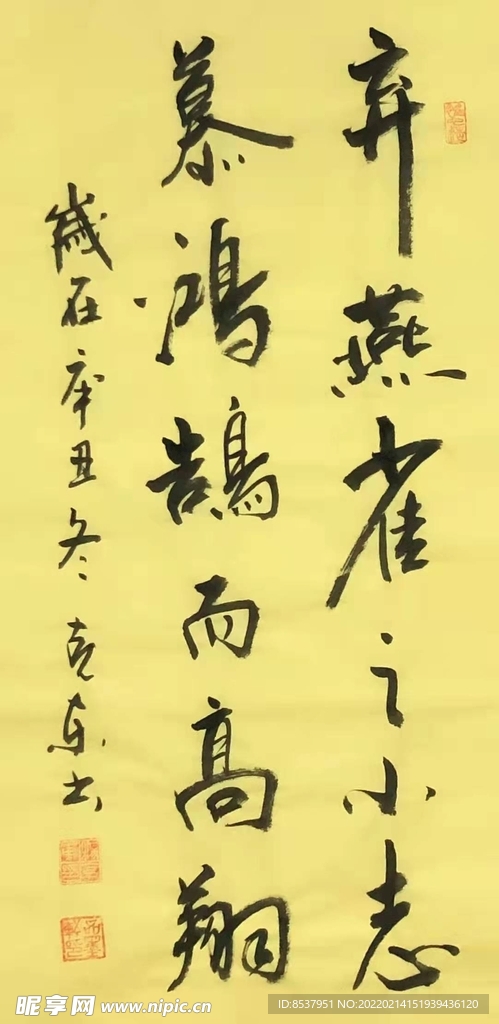 弃燕雀之小志
慕鸿鹄而高翔
岁在庚丑冬 克东书
昵享网 www.nipic.cn
ID:8537951 NO:20220214151939436120